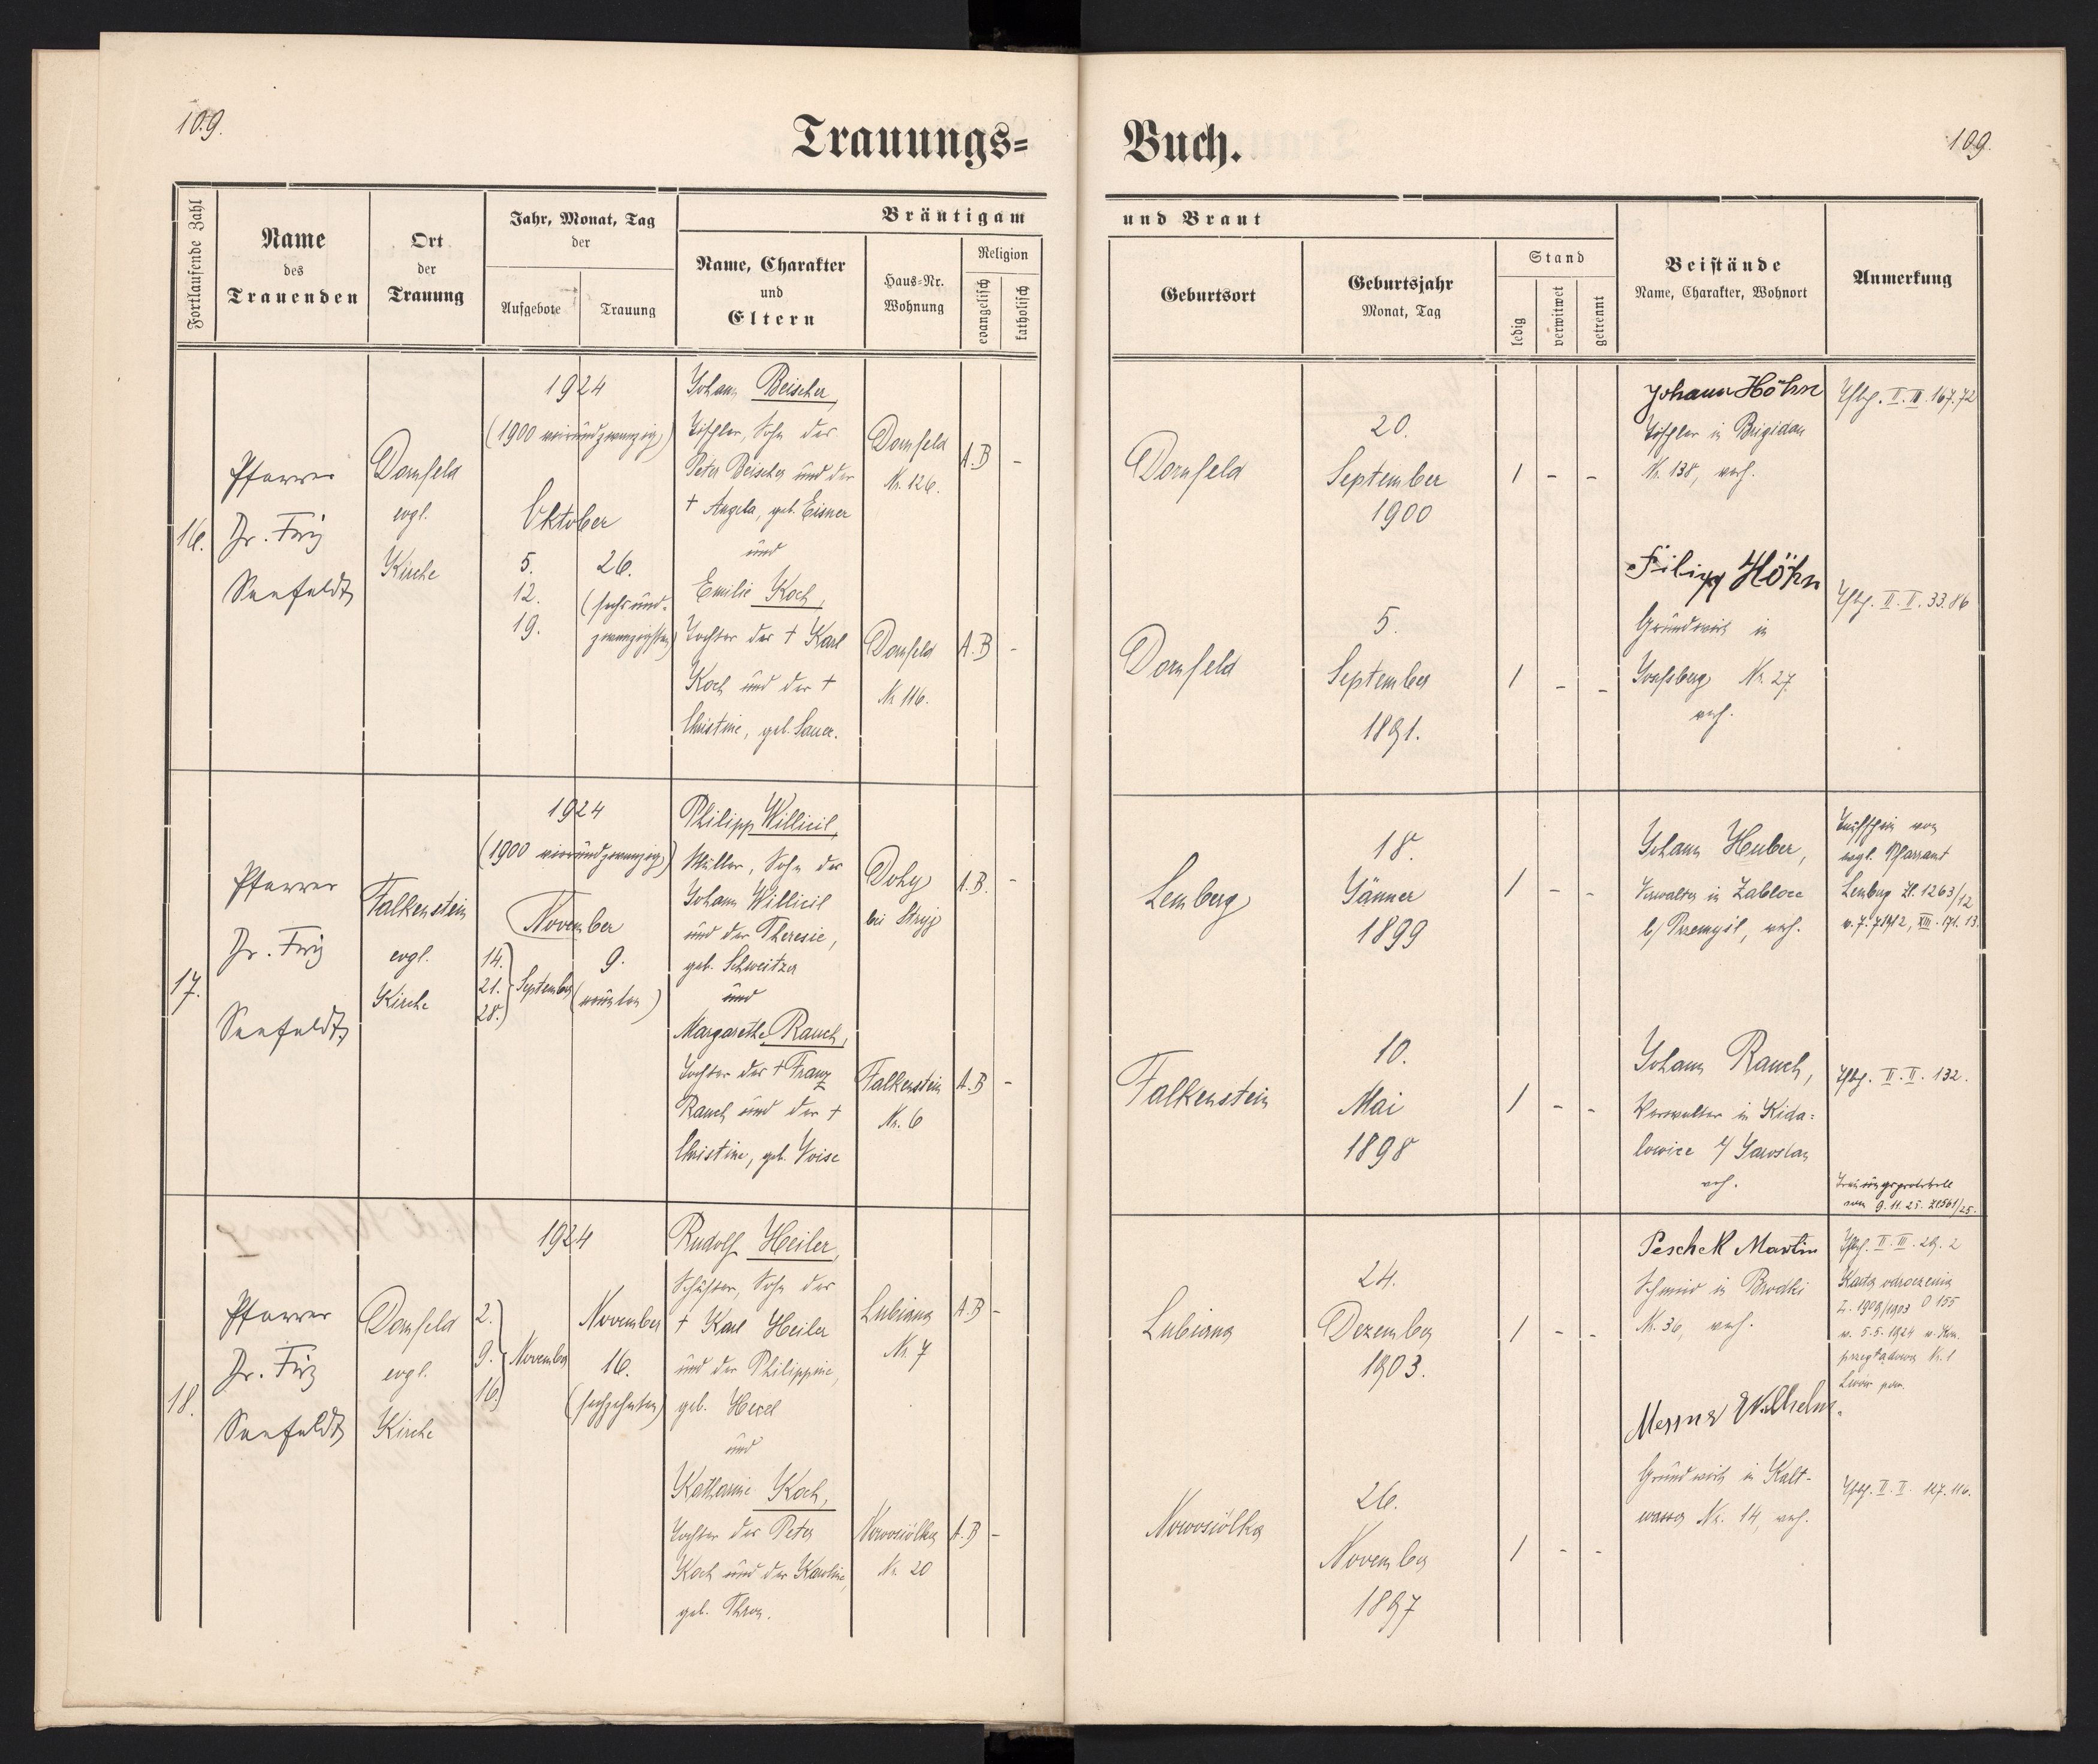 109.
Trauungs=
Buch.
109.
Fortlaufende Zahl
Name
des
Trauenden
Ort
der
Trauung
Jahr, Monat, Tag
der
Aufgebote
Trauung
Bräutigam
Name, Charakter
und
Eltern
Haus=Nr.
Wohnung
Religion
evangelisch
katholisch
und Braut
Geburtsort
Geburtsjahr
Monat, Tag
Stand
ledig
verwitwet
getrennt
Beistände
Name, Charakter, Wohnort
Anmerkung
16.
Pfarrer
Dr. Friz
Seefeldt
Dornfeld
evgl.
Kirche
1924
(1900 vierundzwanzig)
Oktober
5.
12.
19.
26.
(sechsund-
zwanzigsten)
Johann Beischer,
Tischler, Sohn des
Peter Beischer und der
† Angela, geb. Eisner
und
Emilie Koch,
Tochter des † Karl
Koch und der †
Christine, geb. Sauer.
Dornfeld
Nr. 126.
A.B -
Dornfeld
Nr. 116.
A.B -
Dornfeld
20.
September
1900
/ - -
Dornfeld
5.
September
1891.
/ - -
Johann Höhn
Tischler in Brigidau
Nr. 138, verh.
Filipp Höhn
Grundwirt in
Nr. 27.
verh.
II. III. 167.72
II. II. 33.86
17.
Pfarrer
Dr. Friz
Seefeldt
Falkenstein
evgl.
Kirche
1924
(1900 vierundzwanzig)
November
14.
21.
28.
September
9.
(neunten)
Philipp Willicil,
Müller, Sohn des
Johann Willicil
und der Theresie,
geb. Schweitzer
und
Margarethe Rauch,
Tochter des † Franz
Rauch und der †
Christine, geb. Voise
bei Stryj
A.B. -
Falkenstein
Nr. 6
A.B -
Lemberg
18.
Jänner
1899
/ - -
Falkenstein
10.
Mai
1898
/ - -
Johann Huber,
Verwalter in Zablocc
b/ Przemyśl, verh.
Johann Rauch,
Verwalter in Kida=
lowice b/ Jaroslau
verh.
Taufschein vom
evgl. Pfarramt
Lemberg Zl. 1263/12
v. 7.7.1912, XIII. 171. 13.
II. II. 132.
Trauungsprotokoll
vom 9.11.25. Zl.561/25.
18.
Pfarrer
Dr. Friz
Seefeldt
Dornfeld
evgl.
Kirche
1924
2.
9.
16.
November
November
16.
(sechzehnten)
Rudolf Heiler,
Schuster, Sohn des
† Karl Heiler
und der Philippine,
geb. Hexel
und
Katharine Koch,
Tochter des Peter
Koch und der Karoline,
geb. Thron.
Lubiana
Nr. 7
A.B -
Nowosiólka
Nr. 20
A.B -
Lubiana
24.
Dezember
1903.
/ - -
Nowosiólka
26.
November
1897
/ - -
Peschek Martin
Schmied in Brodki
Nr. 36, verh.
Wilhelm.
Grundwirt in Kalt-
wasser Nr. 14, verh.
II. III. 29. 2
Karta odroczenia
L. 1909/1903 O 155
v. 5.5.1924 v. Kom.
przeglądowa Nr. 1
Lwów pow.
II. II. 127.116.